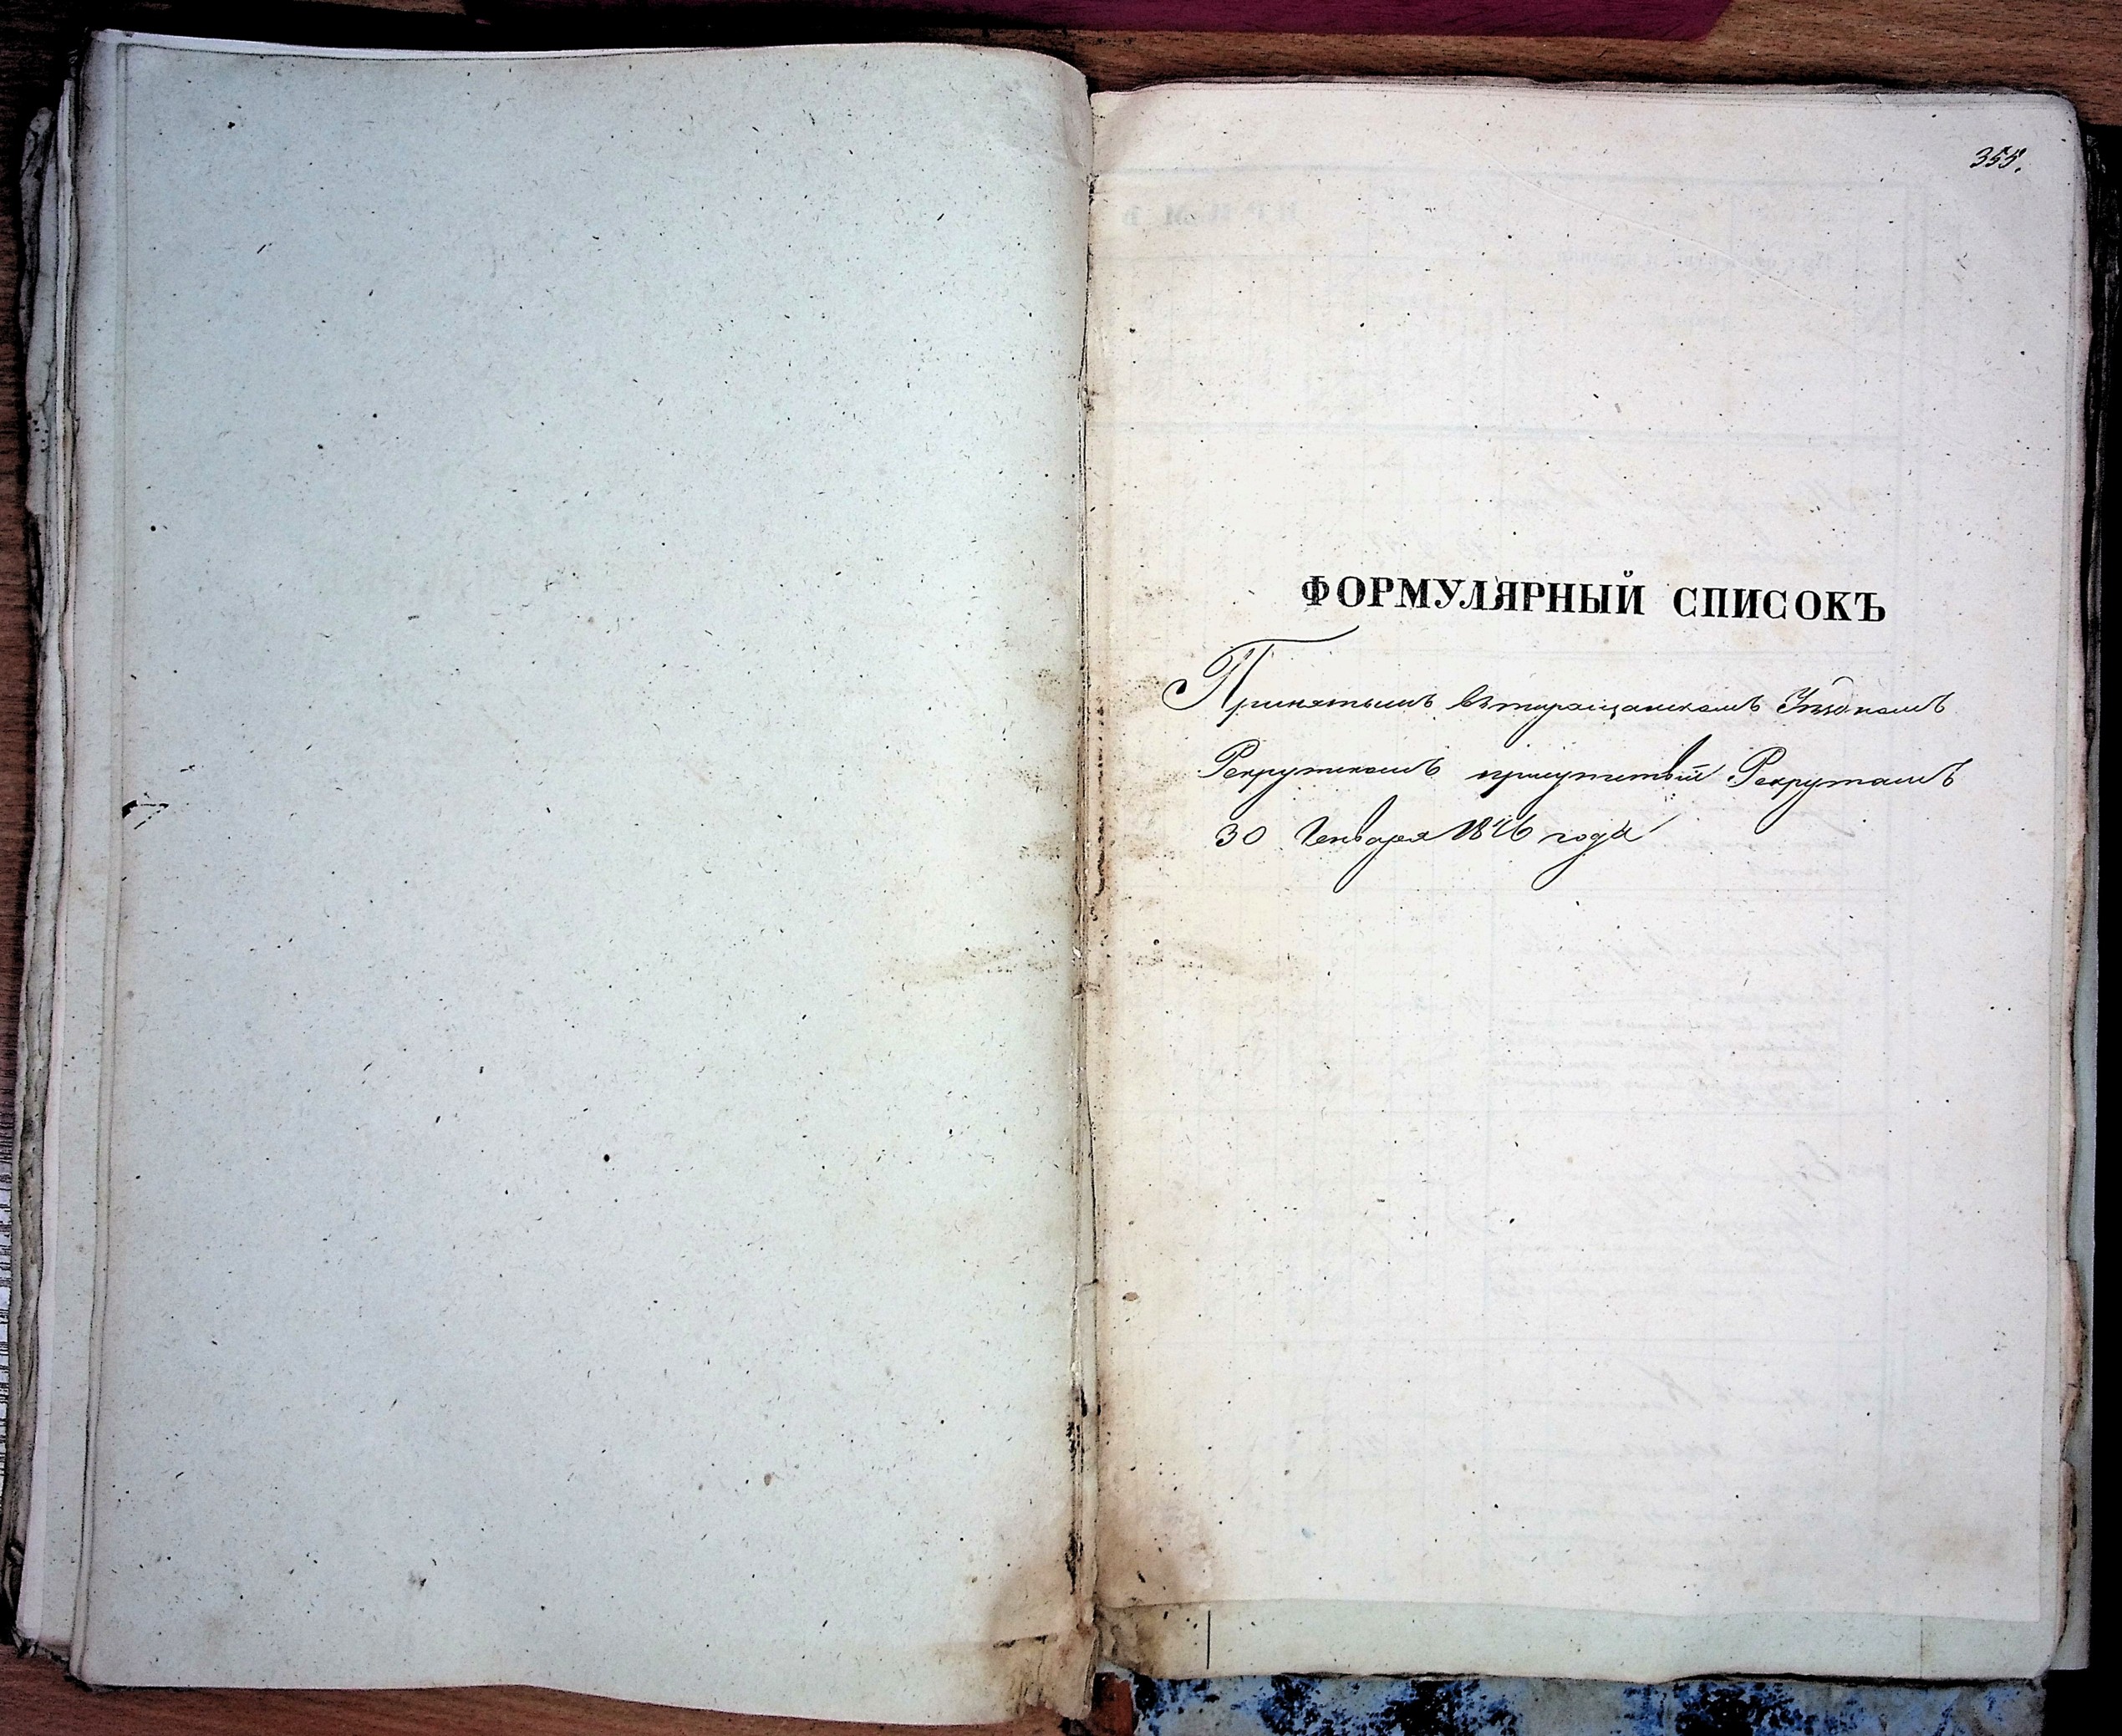 355.
ФОРМУЛЯРНЫЙ СПИСОКЪ
Принятымъ въ таращанскомъ Уѣздномъ
Рекрутскомъ присутствіи Рекрутамъ
30 Генваря 1846 года